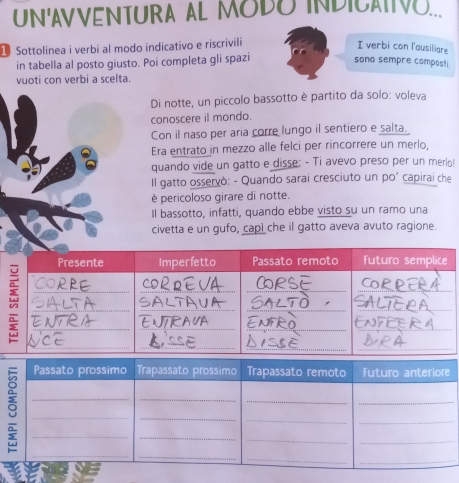 UN'AVVENTURA AL MODO INDICATIVO...
1 Sottolinea i verbi al modo indicativo e riscrivili
in tabella al posto giusto. Poi completa gli spazi
vuoti con verbi a scelta.
I verbi con l'ausiliare
sono sempre composti.
Di notte, un piccolo bassotto è partito da solo: voleva
conoscere il mondo.
Con il naso per aria corre lungo il sentiero e salta.
Era entrato in mezzo alle felci per rincorrere un merlo,
quando vide un gatto e disse: - Ti avevo preso per un merlo!
Il gatto osservò: - Quando sarai cresciuto un po' capirai che
è pericoloso girare di notte.
Il bassotto, infatti, quando ebbe visto su un ramo una
civetta e un gufo, capì che il gatto aveva avuto ragione.
TEMPI SEMPLICI
Presente Imperfetto Passato remoto Futuro semplice
CORRE CORREVA CORSE CORRERÀ
SALTA SALTAVA SALTÒ SALTERA
ENTRA ENTRAVA ENTRÒ ENTRERA
DICE DISSE DIRA
TEMPI COMPOSTI
Passato prossimo Trapassato prossimo Trapassato remoto Futuro anteriore